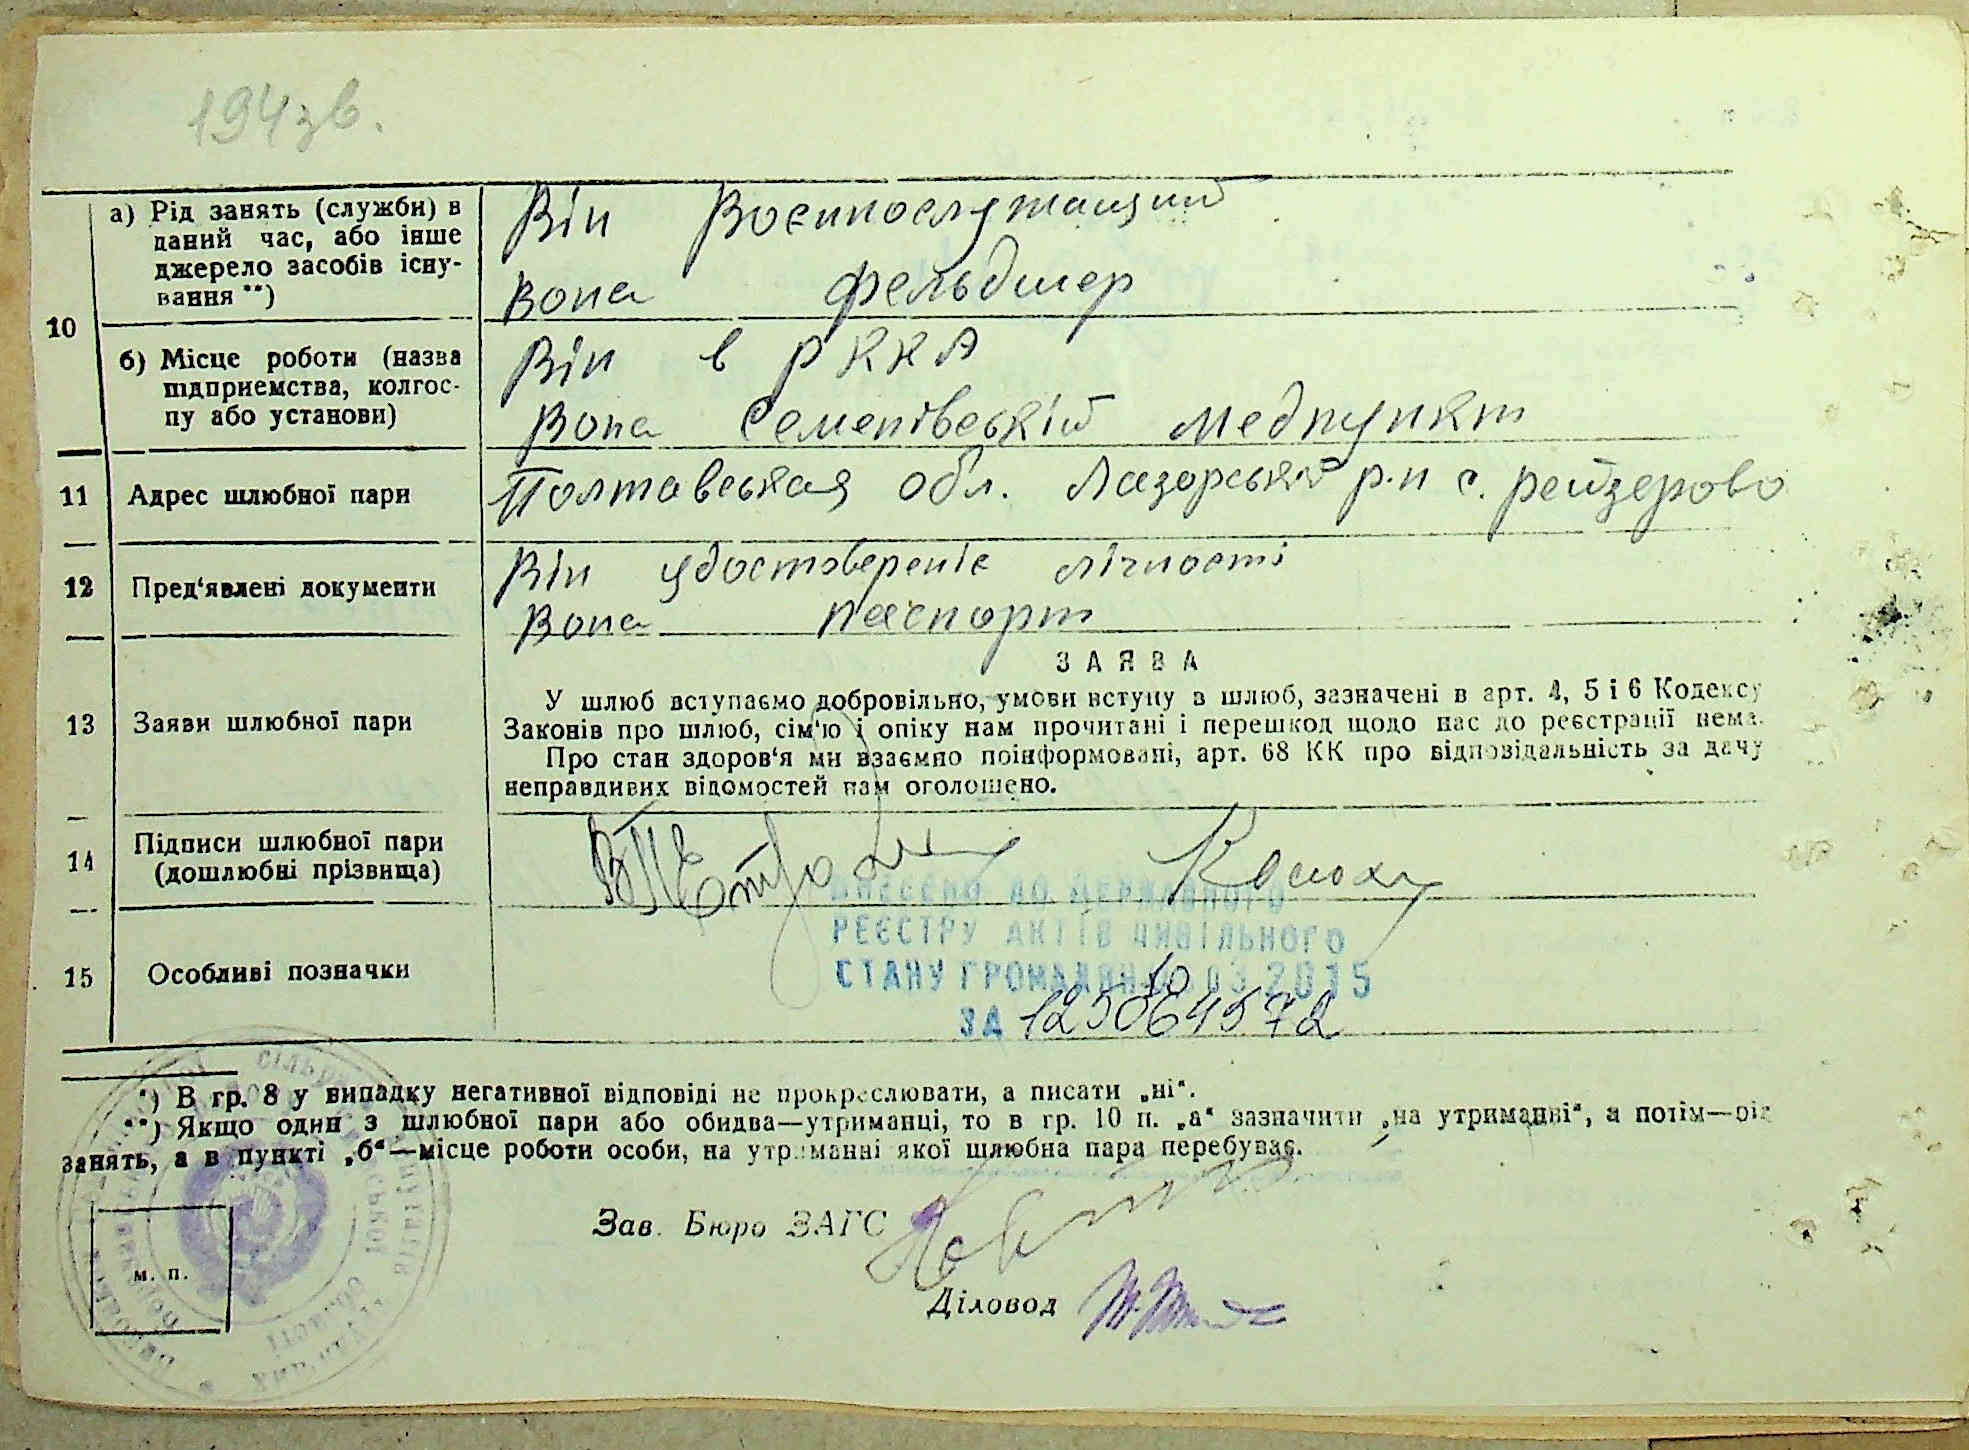 194зв.
10
а) Рід занять (служби) в
даний час, або інше
джерело засобів існу-
вання **)
Він Воєннослужащий
Вона фельдшер
б) Місце роботи (назва
підприемства, колгос-
пу або установи)
Він в РККА
Вона Семенівський медпункт
11 Адрес шлюбної пари
Полтавськая обл. Лазорський р-н с. Рейзерово
12 Пред'явлені документи
Він удостовереніє лічності
Вона паспорт
13 Заяви шлюбної пари
ЗАЯВА
У шлюб вступаємо добровільно, умови вступу в шлюб, зазначені в арт. 4, 5 і 6 Кодексу
Законів про шлюб, сім'ю і опіку нам прочитані і перешкод щодо нас до реєстрації нема.
Про стан здоров'я ми взаємно поінформовані, арт. 68 КК про відповідальність за дачу
неправдивих відомостей нам оголошено.
14 Підписи шлюбної пари
(дошлюбні прізвища)
ВНЕСЕНО ДО ДЕРЖАВНОГО
РЕЄСТРУ АКТІВ ЦИВІЛЬНОГО
СТАНУ ГРОМАДЯН 10 03 2015
ЗА
15 Особливі позначки
*) В гр. 8 у випадку негативної відповіді не прокреслювати, а писати „ні“.
**) Якщо один з шлюбної пари або обидва—утриманці, то в гр. 10 п. „а“ зазначити „на утриманні“, а потім—рід
занять, а в пункті „б“—місце роботи особи, на утриманні якої шлюбна пара перебуває.
Зав. Бюро ЗАГС
м. п.
Діловод